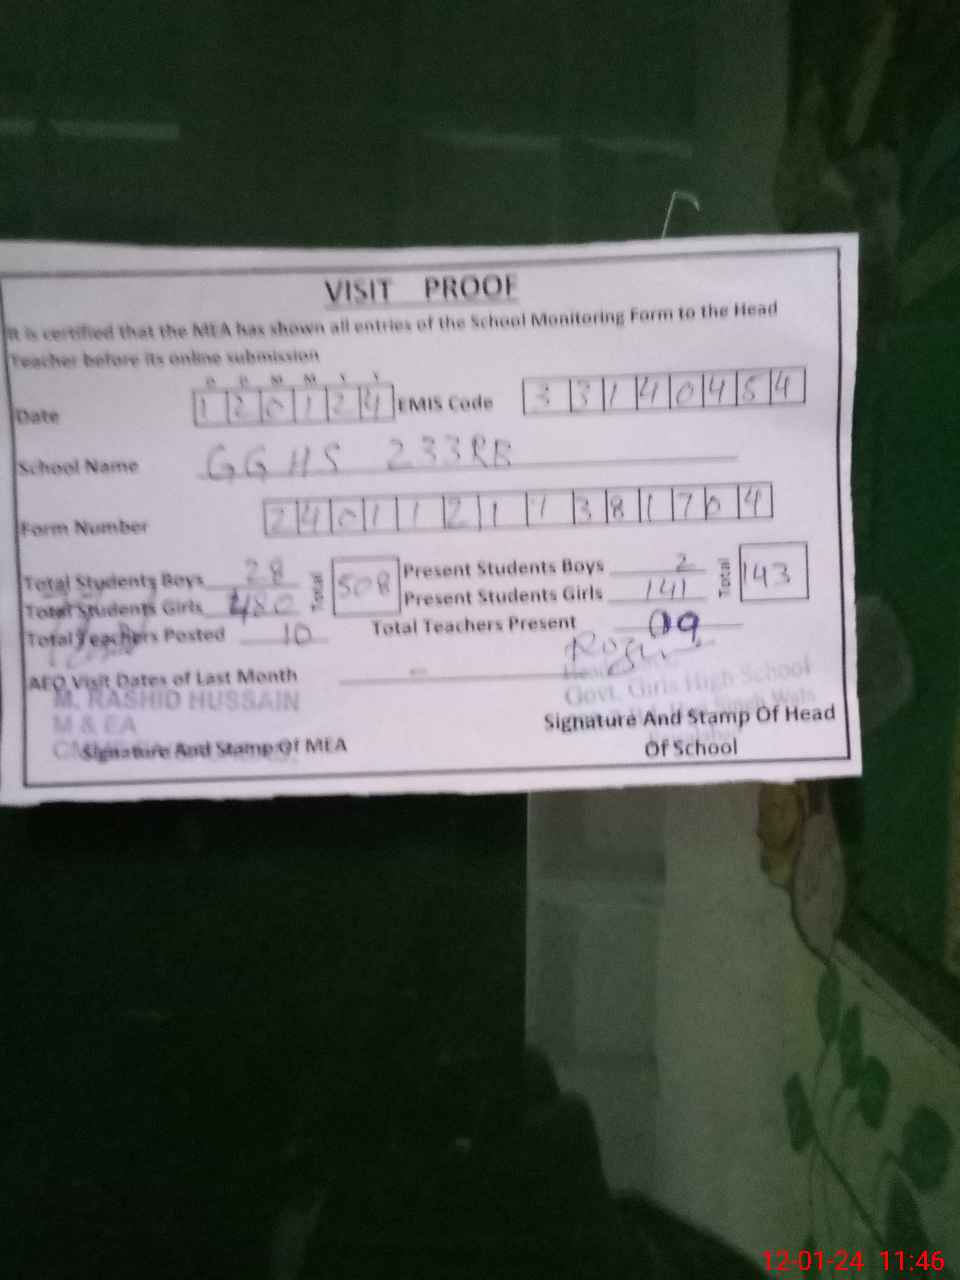 VISIT PROOF
It is certified that the MEA has shown all entries of the School Monitoring Form to the Head
Teacher before its online submission
D D M M Y Y
Date 120124 EMIS Code 33140454
School Name GGHS 233RB
Form Number 240112111381704
Total Students Boys 28 Total 508 Present Students Boys 2 Total 143
Total Students Girls 480 Present Students Girls 141
Total Teachers Posted 10 Total Teachers Present 09
AEO Visit Dates of Last Month –
M. RASHID HUSSAIN
M & EA
Govt. Girls High School
Signature And Stamp Of MEA
Signature And Stamp Of Head
Of School
12-01-24 11:46